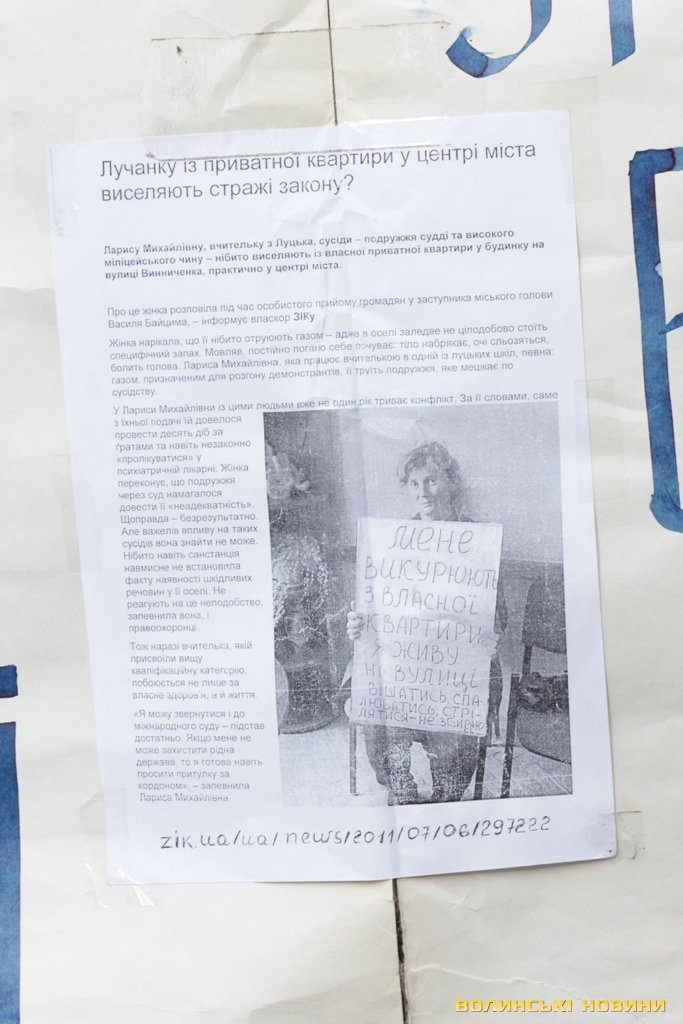 Лучанку із приватної квартири у центрі міста
виселяють стражі закону?
Ларису Михайлівну, вчительку з Луцька, сусіди – подружжя судді та високого
міліцейського чину – нібито виселяють із власної приватної квартири у будинку на
вулиці Винниченка, практично у центрі міста.
Про це жінка розповіла під час особистого прийому громадян у заступника міського голови
Василя Байцима, – інформує власкор ЗІКу.
Жінка нарікала, що її нібито отруюють газом – адже в оселі заледве не цілодобово стоїть
специфічний запах. Мовляв, постійно погано себе почуває: тіло набрякає, очі сльозяться,
болить голова. Лариса Михайлівна, яка працює вчителькою в одній із луцьких шкіл, певна:
газом, призначеним для розгону демонстрантів, її труїть подружжя, яке мешкає по
сусідству.
У Лариси Михайлівни із цими людьми вже не один рік триває конфлікт. За її словами, саме
з їхньої подачі їй довелося
провести десять діб за
ґратами та навіть незаконно
«пролікуватися» у
психіатричній лікарні. Жінка
переконує, що подружжя
через суд намагалося
довести її «неадекватність».
Щоправда – безрезультатно.
Але важелів впливу на таких
сусідів вона знайти не може.
Нібито навіть санстанція
навмисне не встановила
факту наявності шкідливих
речовин у її оселі. Не
реагують на це неподобство,
запевнила вона, і
правоохоронці.
Тож наразі вчителька, якій
присвоїли вищу
кваліфікаційну категорію,
побоюється не лише за
власне здоров'я, а й життя.
«Я можу звернутися і до
міжнародного суду – підстав
достатньо. Якщо мене не
може захистити рідна
держава, то я готова навіть
просити притулку за
кордоном», – запевнила
Лариса Михайлівна
МЕНЕ
ВИКУРЮЮТЬ
З ВЛАСНОЇ
КВАРТИРИ
Я ЖИВУ
НА ВУЛИЦІ
ВІШАТИСЬ, СПА-
ЛЮВАТИСЬ, СТРІ-
ЛЯТИСЯ – НЕ ЗБИРАЮСЬ
zik.ua/ua/news/2011/07/06/297222
ВОЛИНСЬКІ НОВИНИ